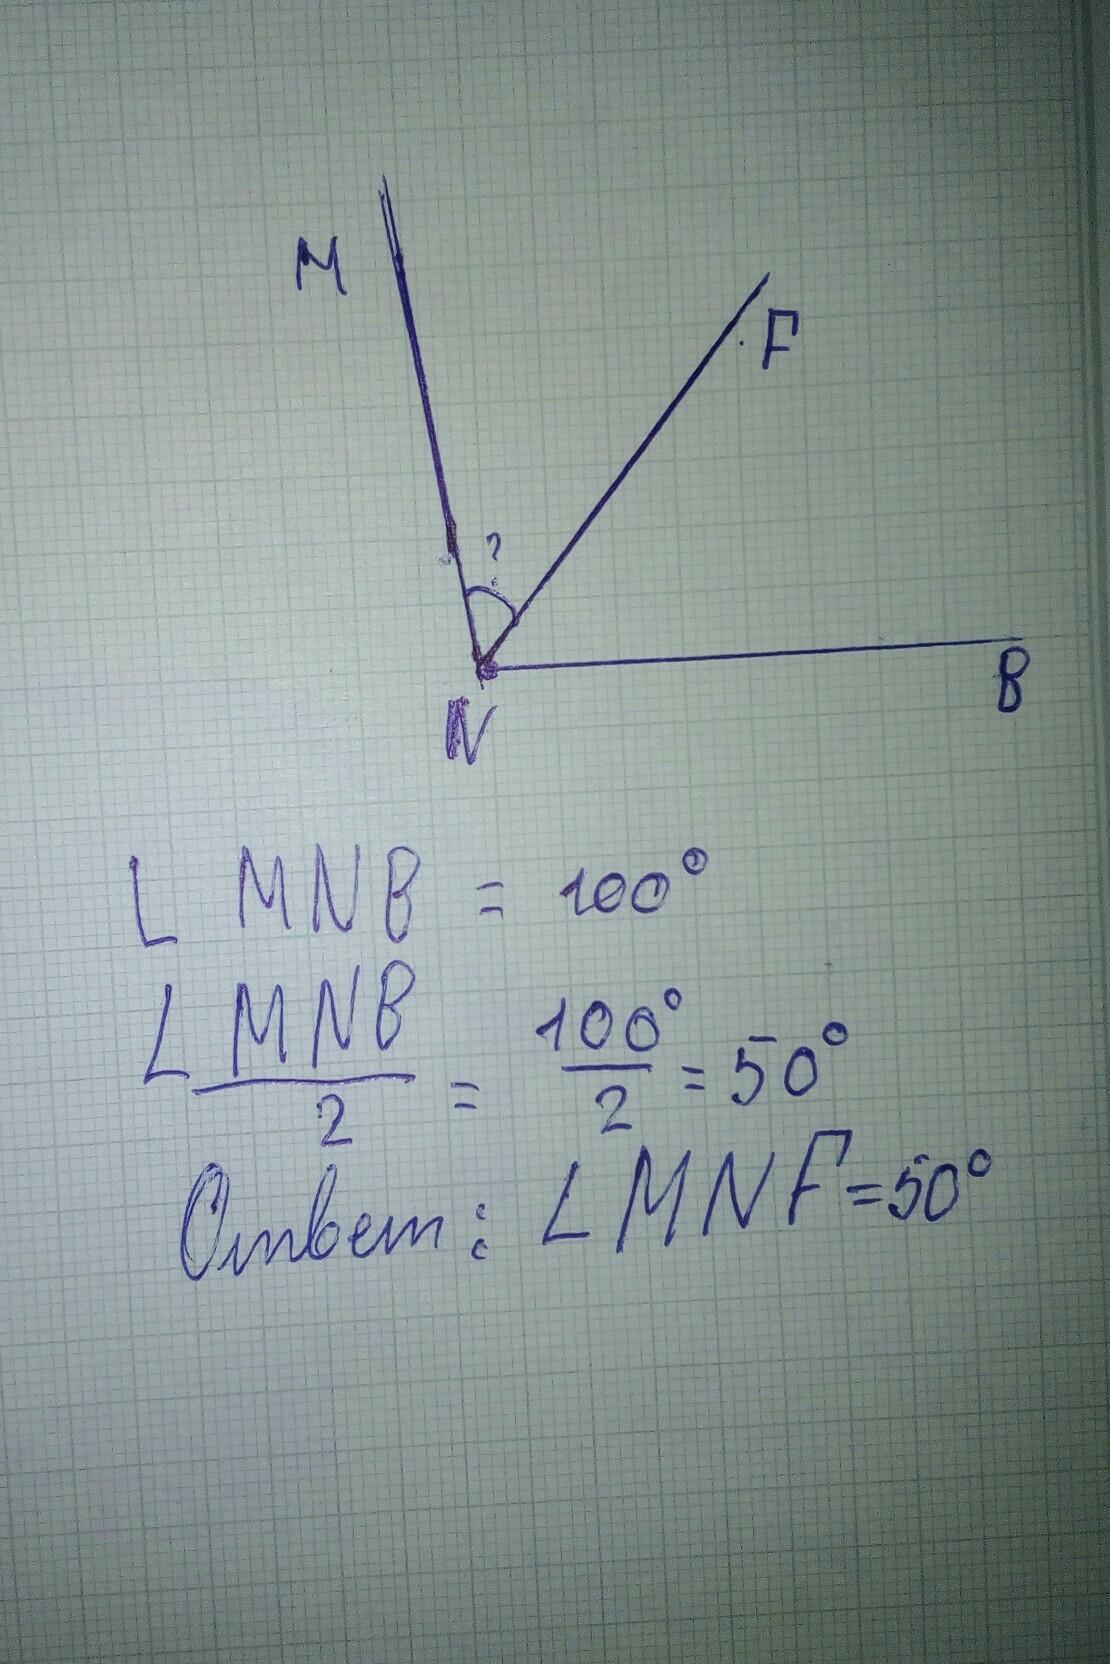 M
F
?
B
N
∠ MNB = 100°
∠ MNB / 2 = 100° / 2 = 50°
Ответ: ∠ MNF = 50°